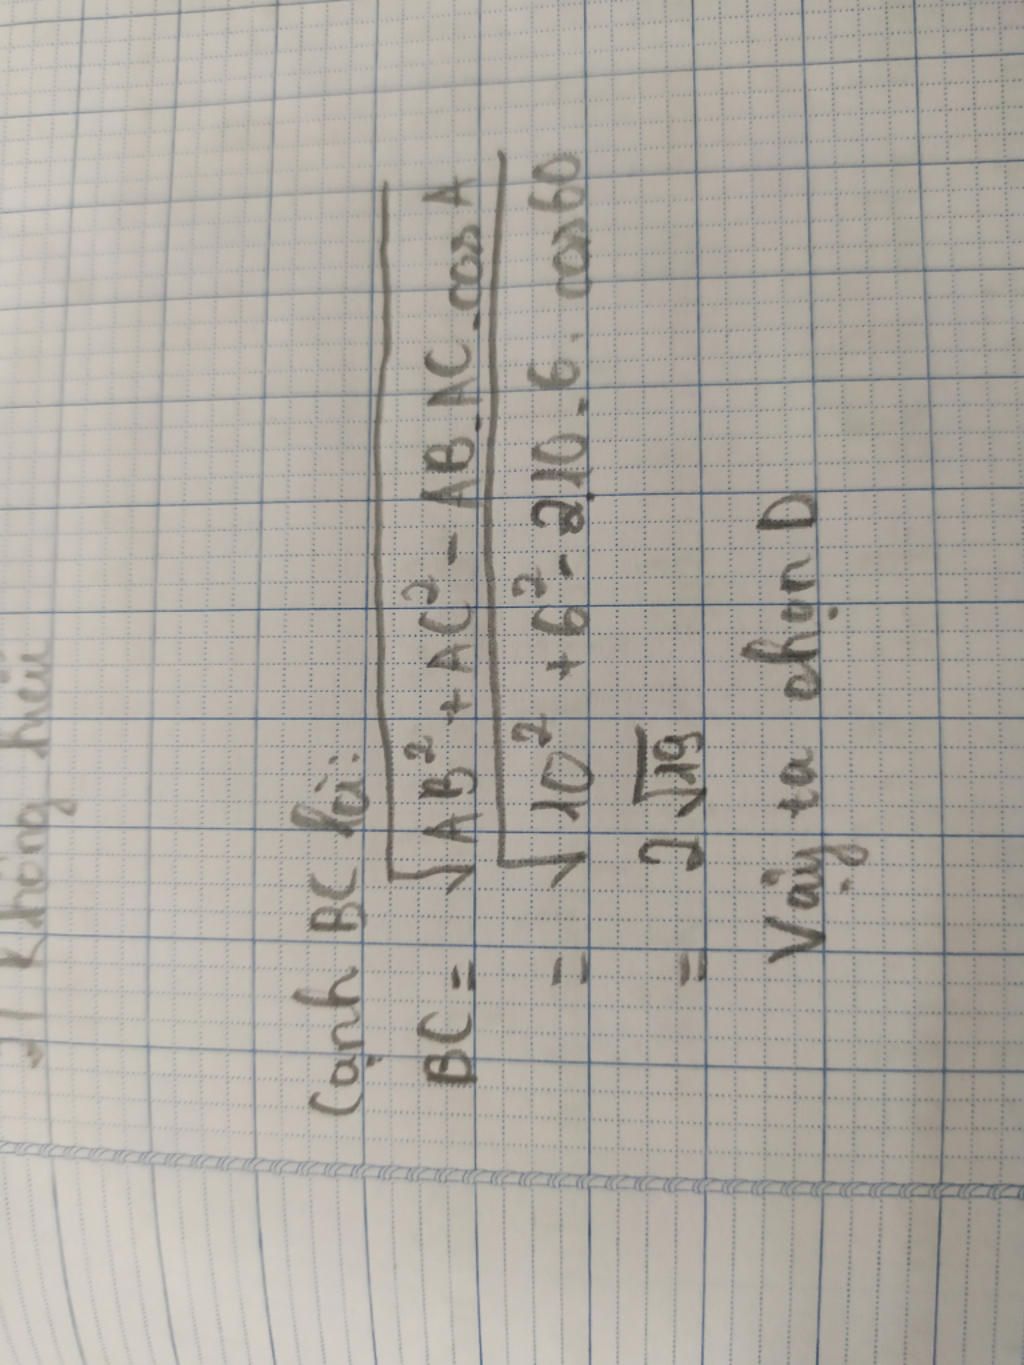 Không hiểu
Cạnh BC là:
BC = √AB² + AC² - AB.AC.cos A
= √10² + 6² - 2.10.6.cos 60
= 2√19
Vậy ta chọn D